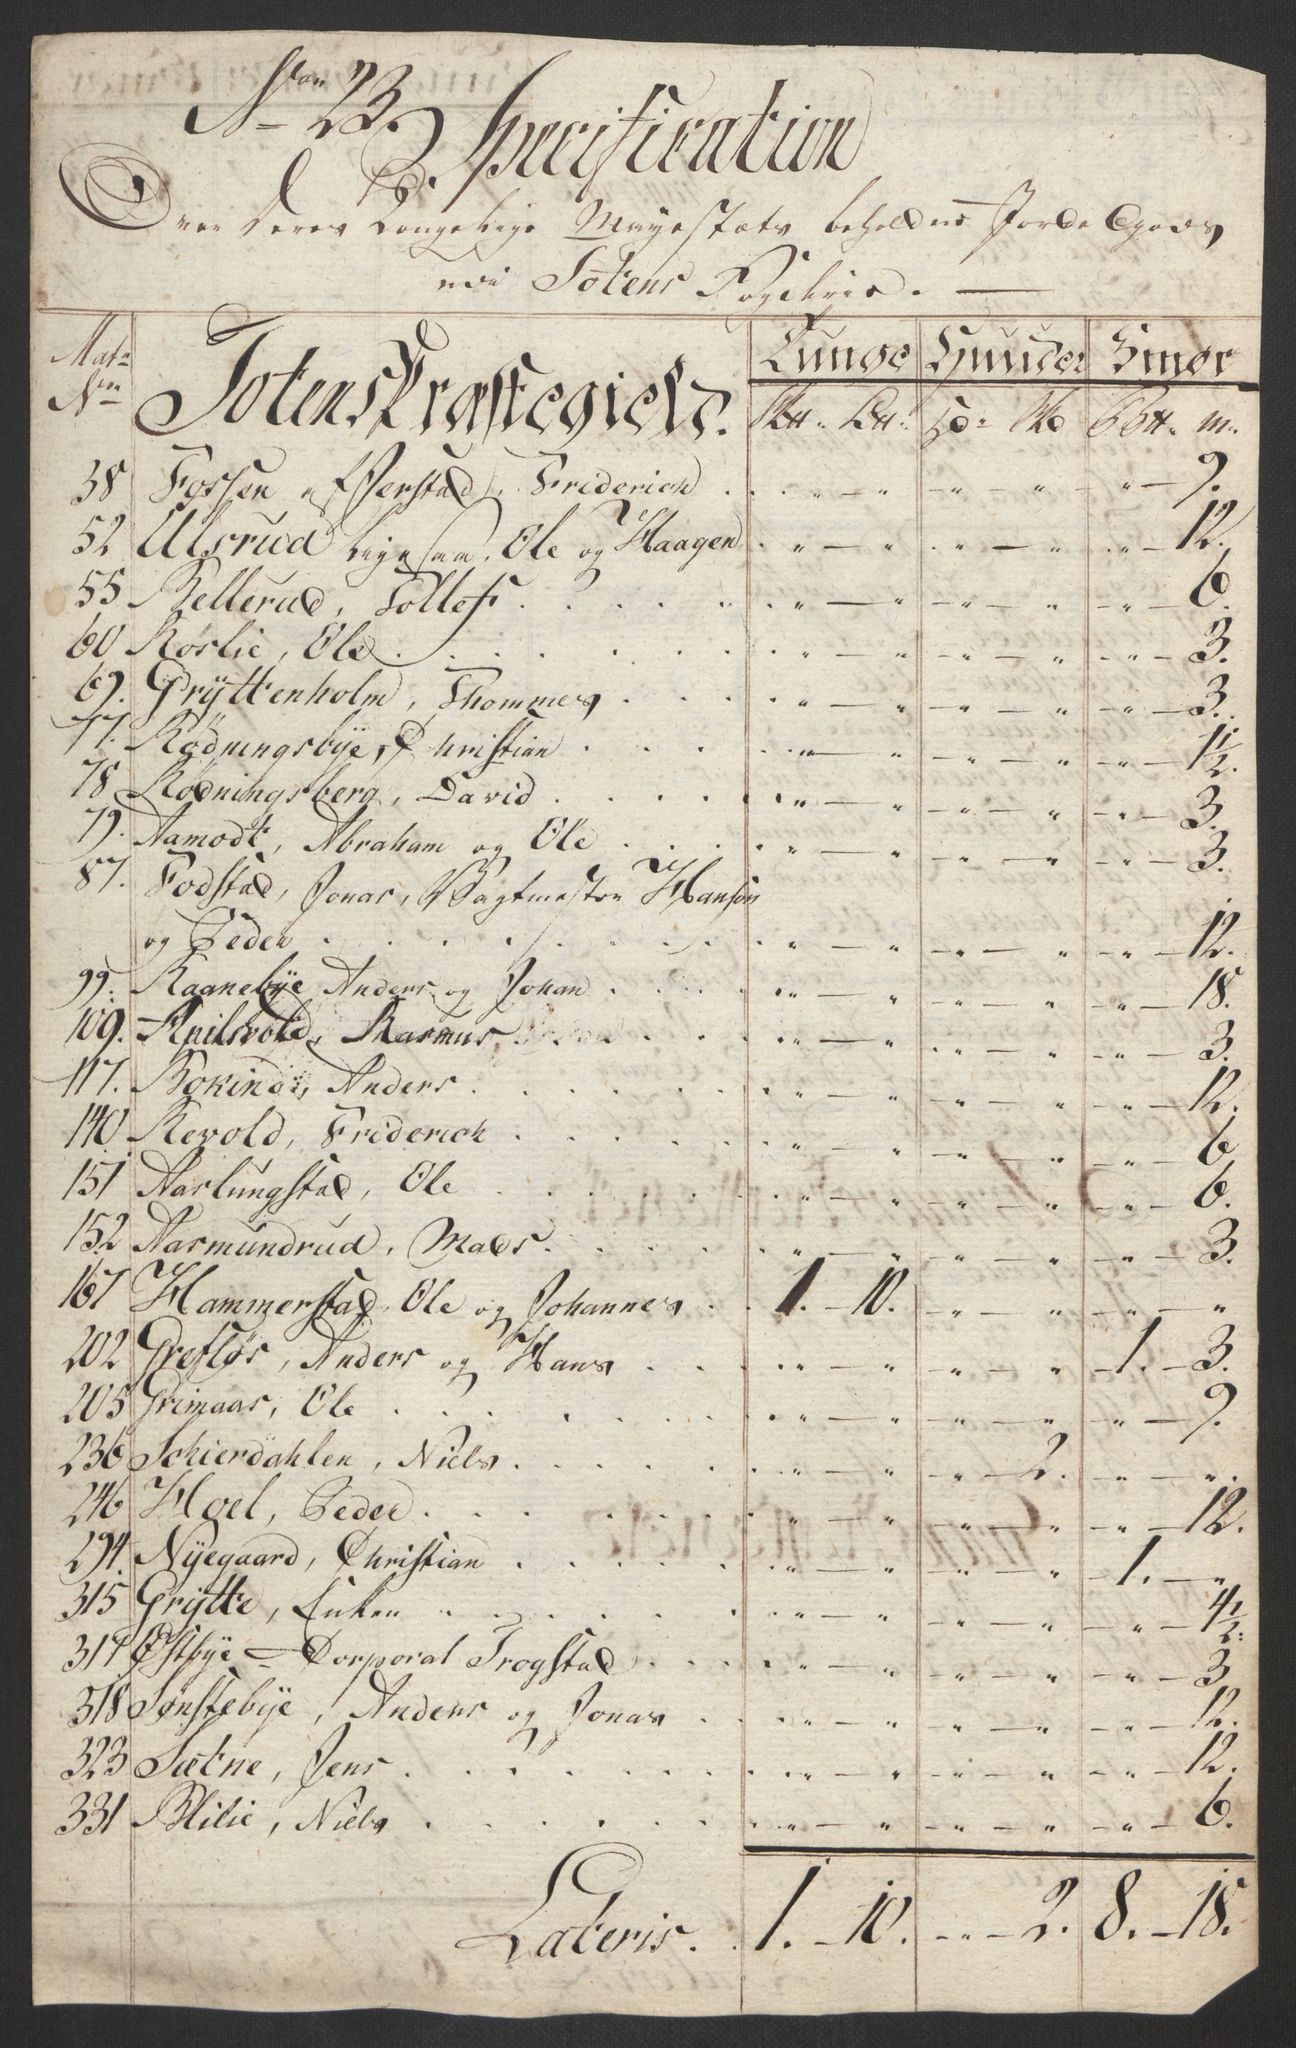 No 23.
Specification
Over Deres Kongelige Mayestæts beholdne Jorde Godes
udi Totens Fogderie. —
Mat: No Totens Præstegield. Tunge Huuder Smør
Sk℔: L℔: Hd: Skd B℔. m:
38 Fossen i Øverstad, Friderich . . " — " — " — " — " — 9.
52 Ulsrud ligesaa, Ole og Haagen . " — " . " — " . " — 12.
55 Kellerud, Tollef . . . . " — " — " — " — " — 6.
60 Rørlie, Ole . . . . " — " — " — " — " — 3.
69. Gryttenholm, Thommes . . . " — " — " — " — " — 3.
77. Rødningsbye, Christian . . . . " — " — " — " — " — 1½.
78 Rødningsberg, David . . . . " — " — " — " — " — 3.
79. Aamodt, Abraham og Ole . . . " — " — " — " — " — 3.
87. Fodstad, Jonas, Wagtmester Hansen
og Peder . . . . " — " — " — " — " — 12.
99. Raanebye Anders og Johan . . . " — " — " — " — " — 18.
109. Knilsvold, Rasmus . . . " — " — " — " — " — 3.
117. Bokind, Anders . . . . " — " — " — " — " — 12.
140. Revold, Friderich . . . . " — " — " — " — " — 6
151 Aarlungstad, Ole . . . . " — " — " — " — " — 6.
152 Aasmundrud, Mads . . . . " — " — " — " — " — 3.
167 Hammerstad, Ole og Johannes . . 1. — 10. — " — " — " — "
202 Grefløs, Anders og Hans . . . " — " — " — " — 1. — 3.
205 Grimaas, Ole . . . . " — " — " — " — " — 9.
236 Schierdahlen, Niels . . . . " — " — " — 2. — " — ".
246 Hoel, Peder . . . . " — " — " — " — " — 12.
294. Nyegaard, Christian . . . . " — " — " — " — 1. — "
315 Grytte, Enken . . . . " — " — " — " — " — 4½.
317 Østbye — Corporal Trogstad . . . " — " — " — " — " — 3
318 Sønstebye, Anders og Jonas . . " — " — " — " — " — 12.
323 Sætne, Jens . . . . " — " — " — " — " — 12.
331 Blilie, Niels . . . . " — " — " — " — " — 6.
Lateris. . 1. — 10. — " — 2. 8. — 18.